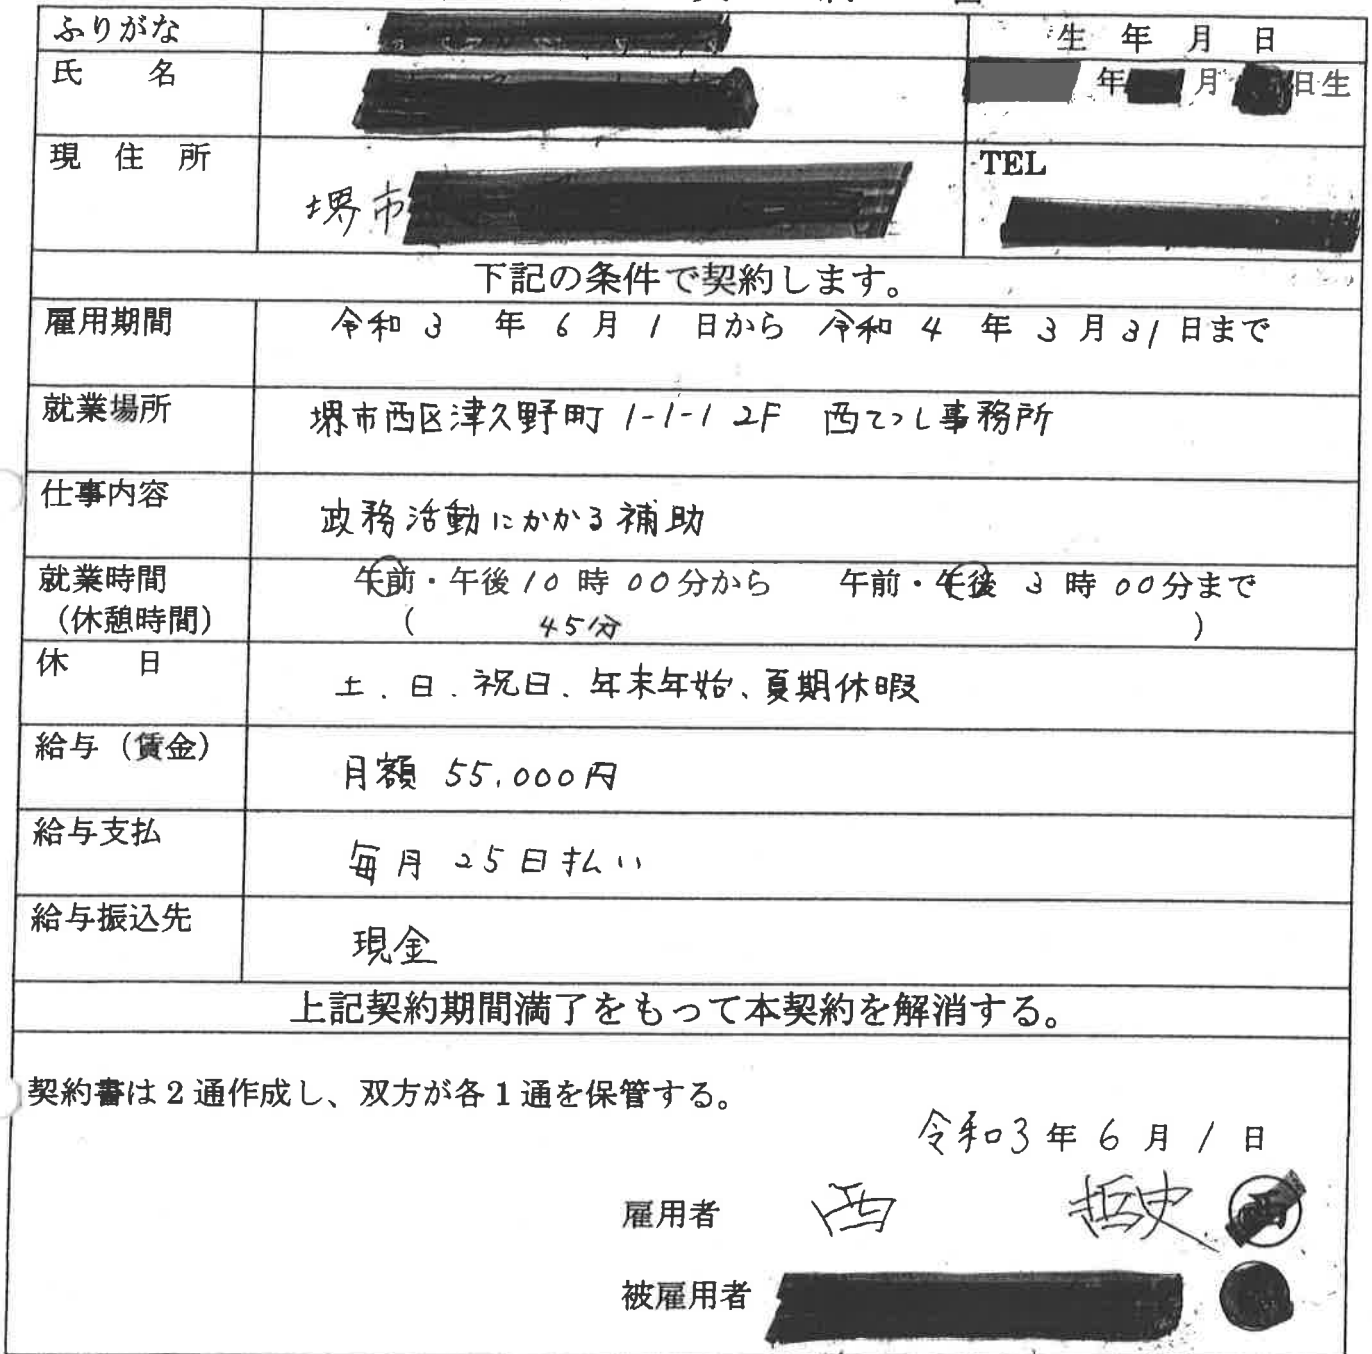 ふりがな
生 年 月 日
氏 名
年 月 日生
現 住 所
堺市
TEL
下記の条件で契約します。
雇用期間
令和 3 年 6 月 1 日から 令和 4 年 3 月 31 日まで
就業場所
堺市西区津久野町 1-1-1 2F 西てつし事務所
仕事内容
政務活動にかかる補助
就業時間
午前・午後 10 時 00 分から 午前・午後 3 時 00 分まで
(休憩時間)
( 45分 )
休 日
土、日、祝日、年末年始、夏期休暇
給与(賃金)
月額 55,000円
給与支払
毎月 25日払い
給与振込先
現金
上記契約期間満了をもって本契約を解消する。
契約書は2通作成し、双方が各1通を保管する。
令和3年 6 月 1 日
雇用者 西 哲史
被雇用者